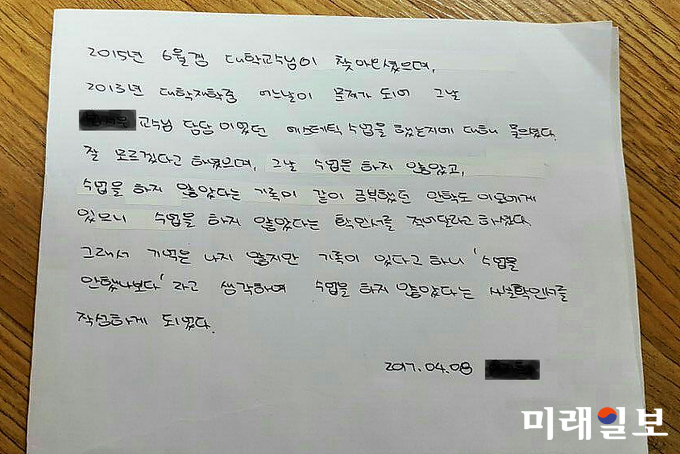 2015년 6월경 대학교수님이 찾아오셨으며,
2013년 대학재학중 어느날이 문제가 되어 그날
교수님 담당 이었던 에스테틱 수업을 했는지에 대해 물으셨다.
잘 모르겠다고 하였으며, 그날 수업은 하지 않았고,
수업을 하지 않았다는 기록이 같이 공부했던 만학도 이모에게
있으니 수업을 하지 않았다는 확인서를 적어달라고 하셨다
그래서 기억은 나지 않지만 기록이 있다고 하니 '수업을
안했나보다' 라고 생각하여 수업을 하지 않았다는 사실확인서를
작성하게 되었다.
2017.04.08
미래일보